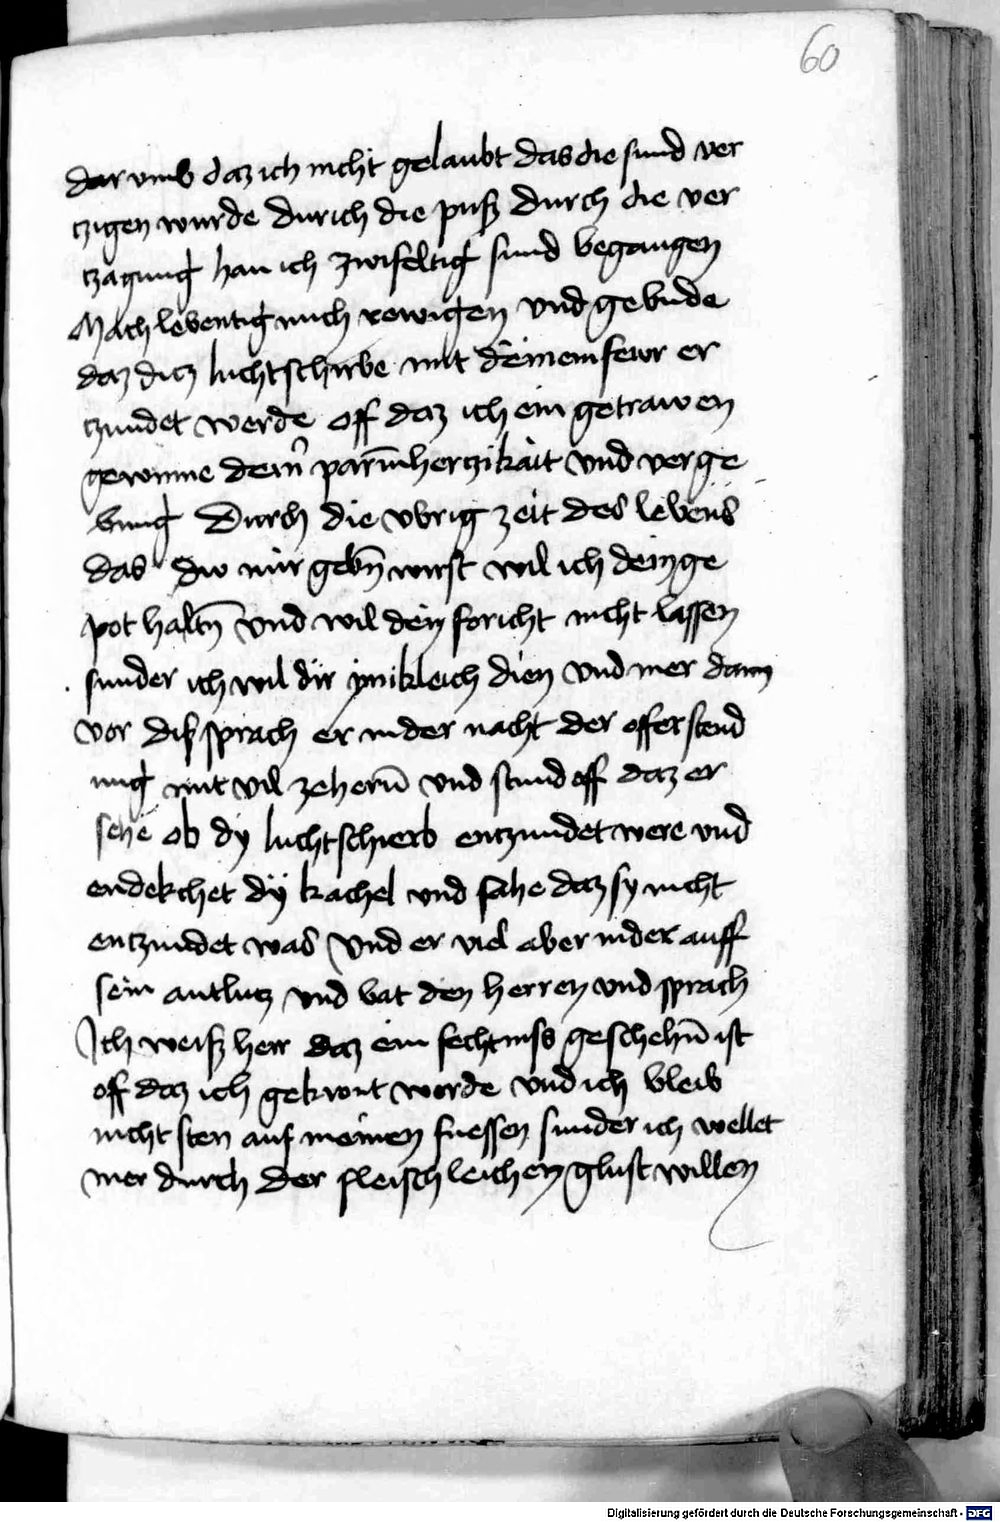 60
dar vmb daz ich nicht gelaubt das die sund ver
tzigen wurde durich die pusz durch die ver
tzagung han ich zwifeltig sund begangen
Mach lebentig mich rewigen vnd gebude
daz dicz lichtschirbe mit deinem fewr er
tzundet werde off daz ich ein getrawen
gewinne dein parmhertzikait vnd verge
bung Durch die vbrig zeit des lebens
das dw mir gebn̄ wirst wil ich dein ge
pot haltn̄ vnd wil dein foricht nicht lassen
sunder ich wil dir ynikleich dien vnd mer dann
vor disz sprach er in der nacht der offerstend
ung mit vil zehern̄ vnd stund off daz er
sehe ob dy lichtschierb entzundet were vnd
endekchet dÿ kachel vnd sahe daz sy nicht
entzundet was Vnd er viel aber nider auff
sein antlutz vnd bat den herren vnd sprach
Ich weisz herr daz ein fechtniss geschehn̄ ist
off daz ich gekront werde vnd ich bleib
nicht sten auf meinen fuessen sunder ich wellet
mer durch der fleischleichen glust willen
Digitalisierung gefördert durch die Deutsche Forschungsgemeinschaft - DFG